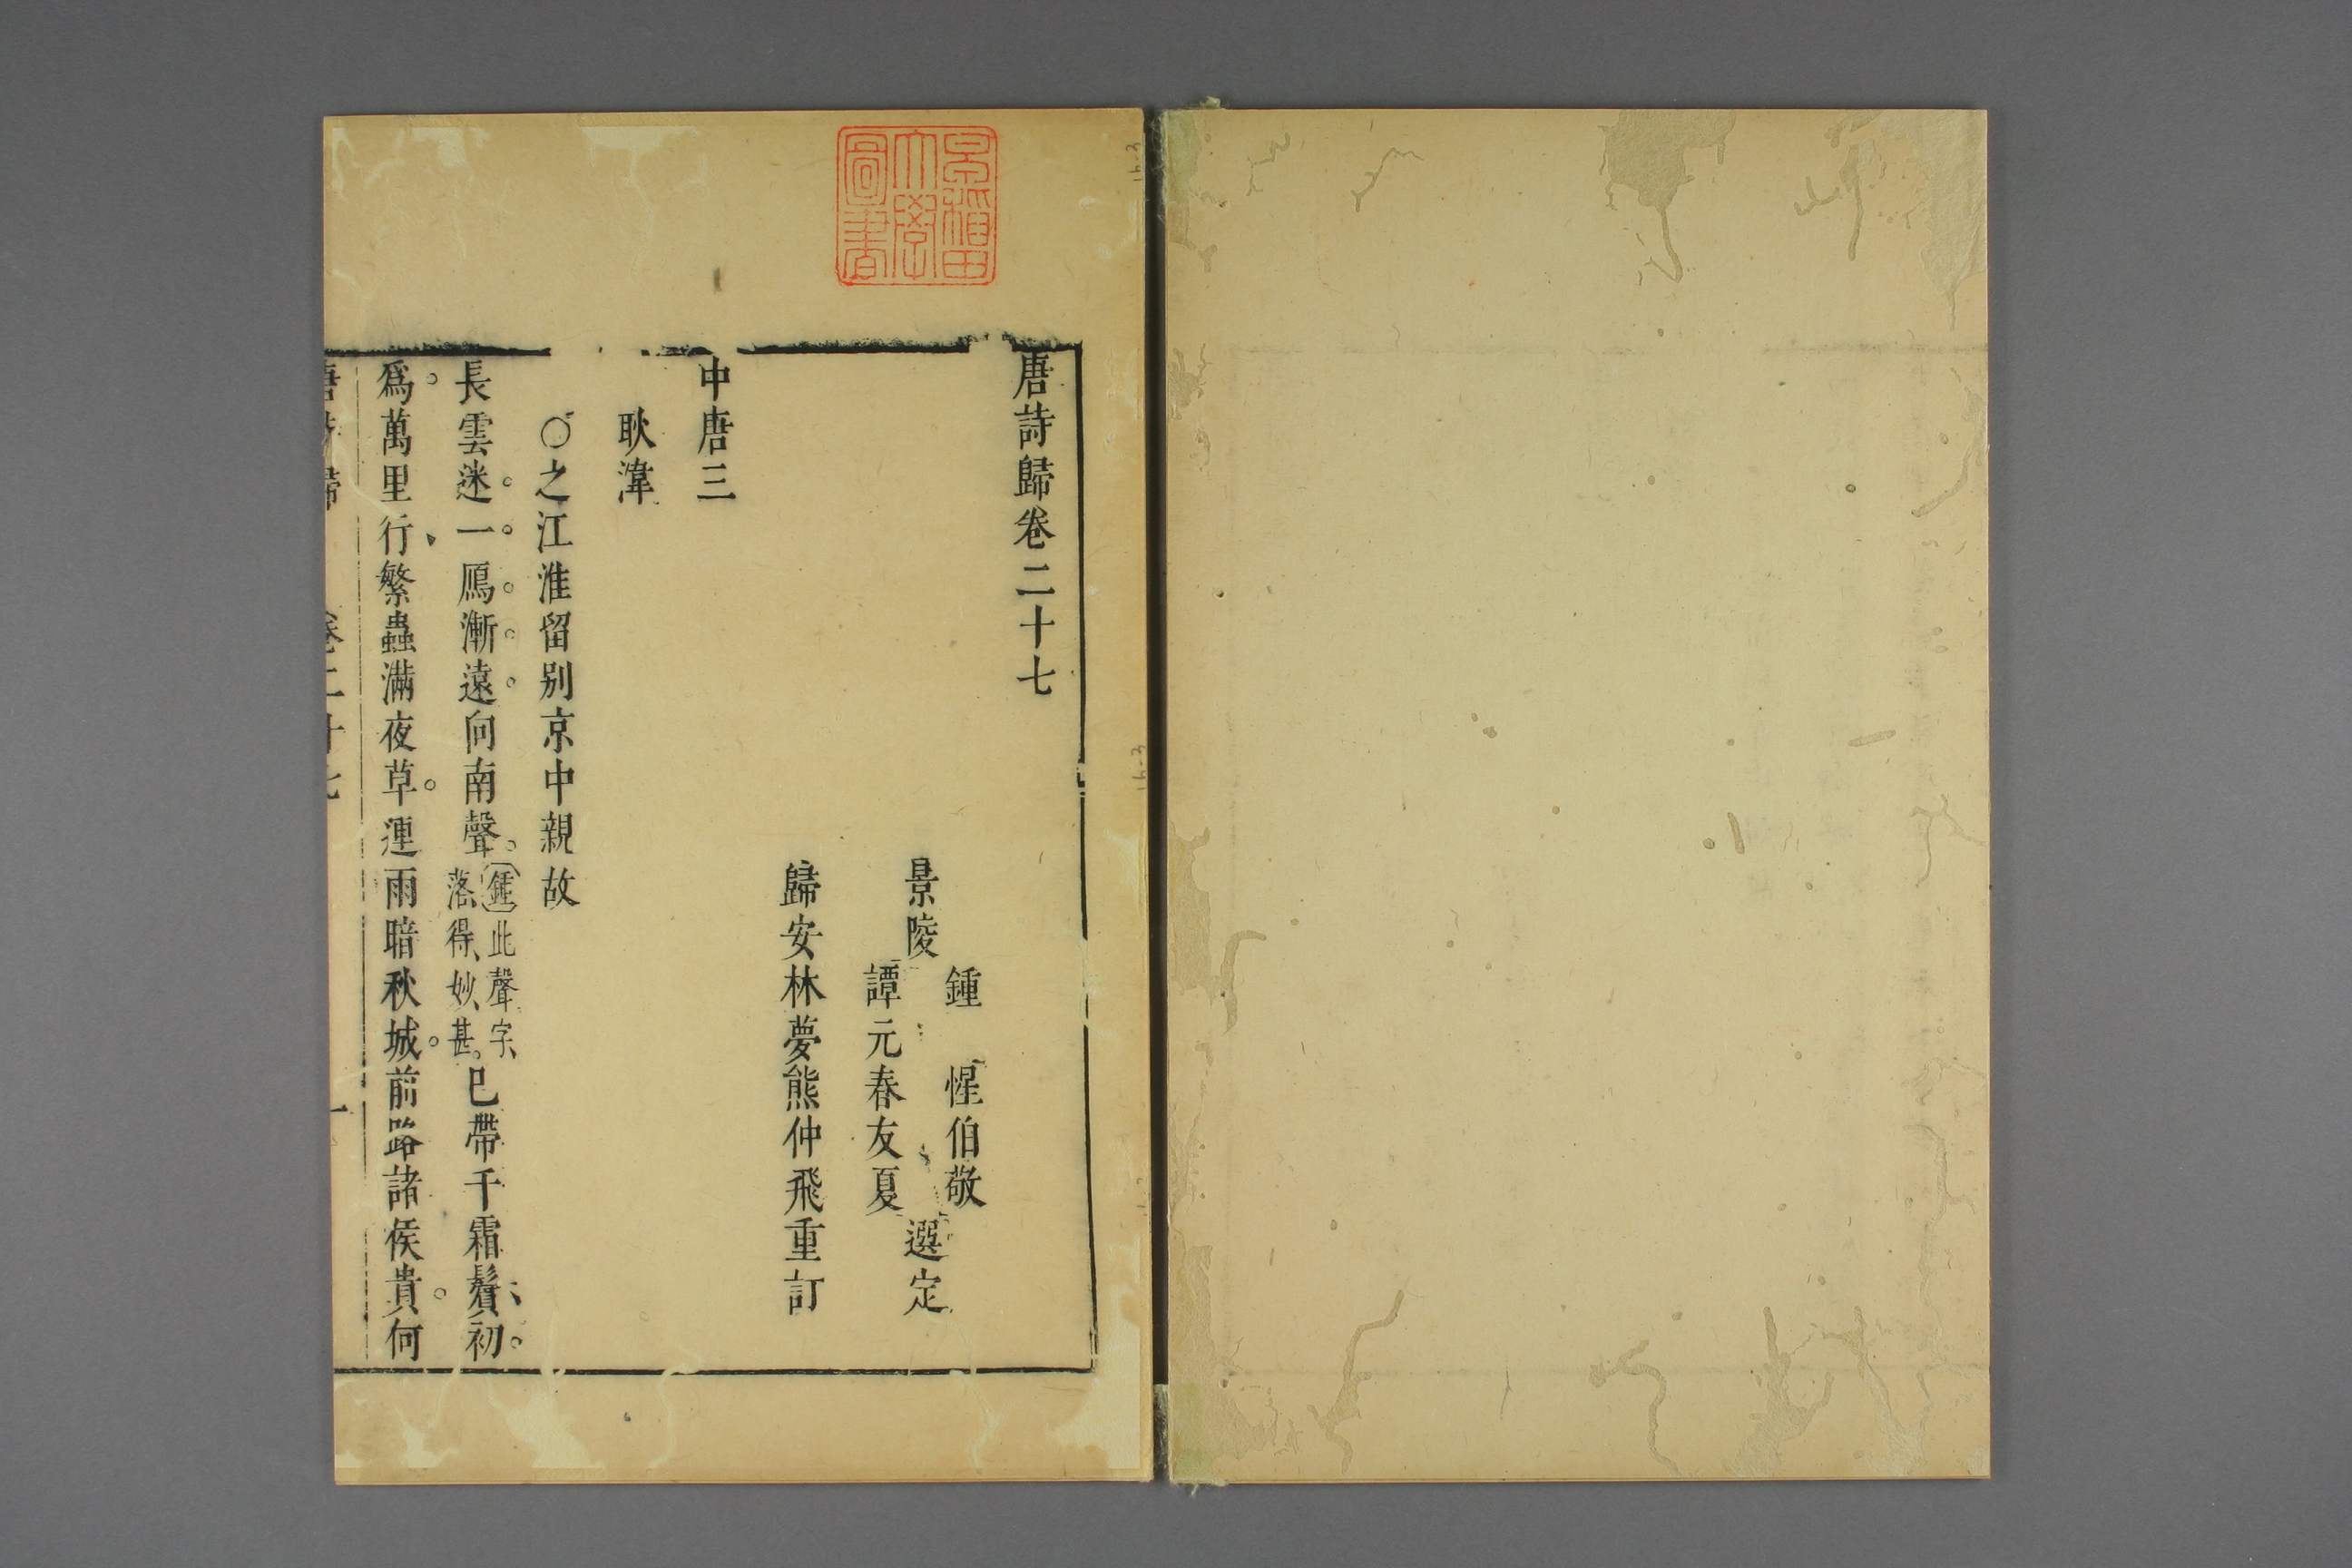 早稲田
大學
圖書
唐詩歸卷二十七
鍾　惺伯敬
景陵　選定
譚元春友夏
歸安林夢熊仲飛重訂
中唐三
耿湋
○之江淮留別京中親故
長雲迷一鴈漸遠向南聲。鍾此聲字、落得、妙、甚。已帶千霜鬢初
爲萬里行繁蟲滿夜草連雨暗秋城前路諸侯貴何
唐詩歸　卷二十七　一